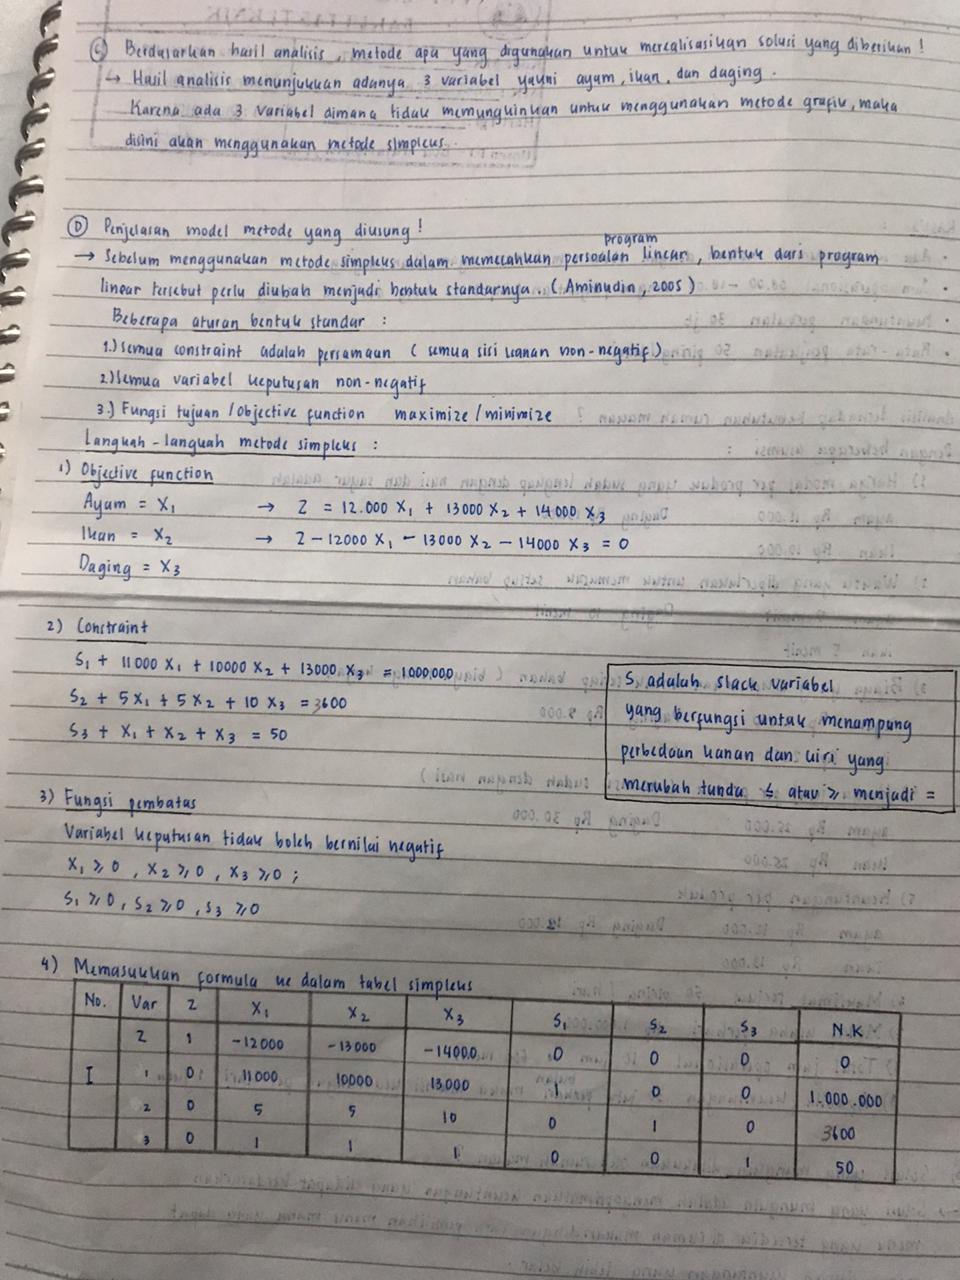 C Berdasarkan hasil analisis, metode apa yang digunakan untuk merealisasikan solusi yang diberikan!
↳ Hasil analisis menunjukkan adanya 3 variabel yakni ayam, ikan, dan daging.
Karena ada 3 variabel dimana tidak memungkinkan untuk menggunakan metode grafik, maka
disini akan menggunakan metode simpleks.
D Penjelasan model metode yang diusung!
→ Sebelum menggunakan metode simpleks dalam memecahkan persoalan program linear, bentuk dari program
linear tersebut perlu diubah menjadi bentuk standarnya. (Aminudin, 2005)
Beberapa aturan bentuk standar :
1.) Semua constraint adalah persamaan (semua sisi kanan non-negatif)
2.) Semua variabel keputusan non-negatif
3.) Fungsi tujuan / objective function maximize / minimize
Langkah-langkah metode simpleks :
1) Objective function
Ayam = X1 → Z = 12.000 X1 + 13000 X2 + 14000 X3
Ikan = X2 → Z - 12000 X1 - 13000 X2 - 14000 X3 = 0
Daging = X3
2) Constraint
S1 + 11000 X1 + 10000 X2 + 13000 X3 = 1.000.000
S2 + 5X1 + 5X2 + 10 X3 = 3600
S3 + X1 + X2 + X3 = 50
S adalah slack variabel
yang berfungsi untuk menampung
perbedaan kanan dan kiri yang
merubah tanda ≤ atau ≥ menjadi =
3) Fungsi pembatas
Variabel keputusan tidak boleh bernilai negatif
X1 ≥ 0, X2 ≥ 0, X3 ≥ 0;
S1 ≥ 0, S2 ≥ 0, S3 ≥ 0
4) Memasukkan formula ke dalam tabel simpleks
No. Var Z X1 X2 X3 S1 S2 S3 N.K
Z 1 -12000 -13000 -14000 0 0 0 0
I 1 0 11000 10000 13000 1 0 0 1.000.000
2 0 5 5 10 0 1 0 3600
3 0 1 1 1 0 0 1 50